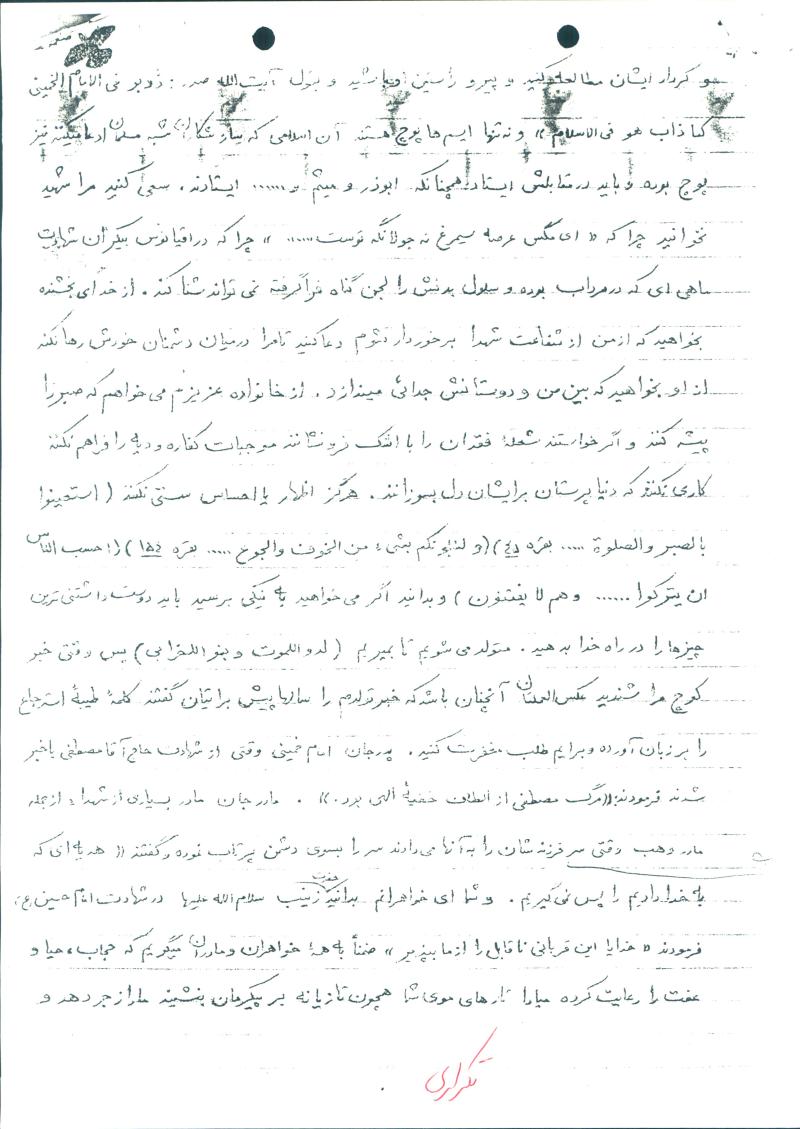 صفحه
و کردار ایشان مطالعه کنید و پیرو راستین او باشید و بقول آیت الله صدر: ذوبو فی الامام الخمینی
کما ذاب هو فی الاسلام» و نه تنها ایسم ها پوچ هستند آن اسلامی که سازشکاران شبه مسلمان ادعا میکنند نیز
پوچ بوده و باید در مقابلش ایستاد همچنانکه ابوذر و میثم و ...... ایستادند. سعی کنید مرا شهید
نخوانید چرا که «ای مگس عرصه سیمرغ نه جولانگه توست ......» چرا که در اقیانوس بیکران شهادت
ماهی ای که در مرداب بوده و سلول بدنش را لجن گناه فرا گرفته نمی تواند شنا کند. از خدای بخشنده
بخواهید که از من از شفاعت شهدا برخوردار شوم دعا کنید تا مرا در میان دشمنان خودش رها نکند
از او بخواهید که بین من و دوستانش جدائی میندازد. از خانواده عزیزم می خواهم که صبر را
پیشه کنند و اگر خواستند شعلهٔ فقدان را با اشک فرو نشانند موجبات کفاره و دیه را فراهم نکنند
کاری نکنند که دنیا پرستان برایشان دل بسوزانند. هرگز اظهار یا احساس سستی نکنند (استعینوا
بالصبر والصلوة ..... بقره ٤٥) (و لنبلونکم بشیء من الخوف والجوع ..... بقره ١٥٥) (احسب الناس
ان یترکوا ...... وهم لا یفتنون) و بدانید اگر می خواهید به نیکی برسید باید دوست داشتنی ترین
چیزها را در راه خدا بدهید. متولد می شویم تا بمیریم (لدو اللموت و بنو اللخرابی) پس وقتی خبر
کوچ مرا شنیدید عکس العملتان آنچنان باشد که خبر تولدم را سالها پیش برایتان گفتند کلمهٔ طیبهٔ استرجاع
را بر زبان آورده و برایم طلب مغفرت کنید. پدر جان امام خمینی وقتی از شهادت حاج آقا مصطفی باخبر
شدند فرمودند: «مرگ مصطفی از الطاف خفیهٔ الهی بود.» . مادر جان مادر بسیاری از شهداء از جمله
مادر وهب وقتی سر فرزندشان را به آنها می دادند سر را بسوی دشمن پرتاب نموده و گفتند «هدیه ای که
به خدا دادیم را پس نمی گیریم. و شما ای خواهرانم بدانید حضرت زینب سلام الله علیها در شهادت امام حسین (ع)
فرمودند «خدایا این قربانی ناقابل را از ما بپذیر» ضمناً به همهٔ خواهران و مادران میگویم که حجاب، حیا و
عفت را رعایت کرده مبادا تارهای موی شما همچون تازیانه بر پیکرمان بنشیند ما را زجر دهد و
تکراری